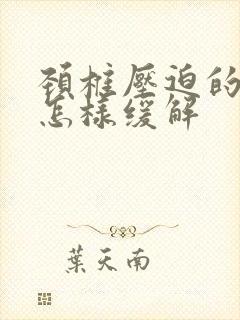 頚椎壓迫的
怎樣緩解
葉天南